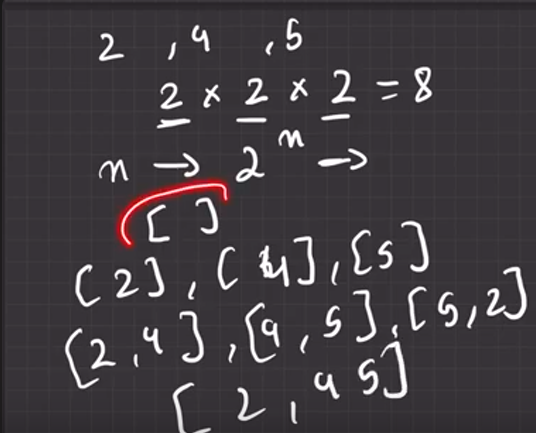 2 , 4 , 5
2 × 2 × 2 = 8
n → 2^n →
[ ]
[2], [4], [5]
[2,4], [4,5], [5,2]
[2, 4 5]